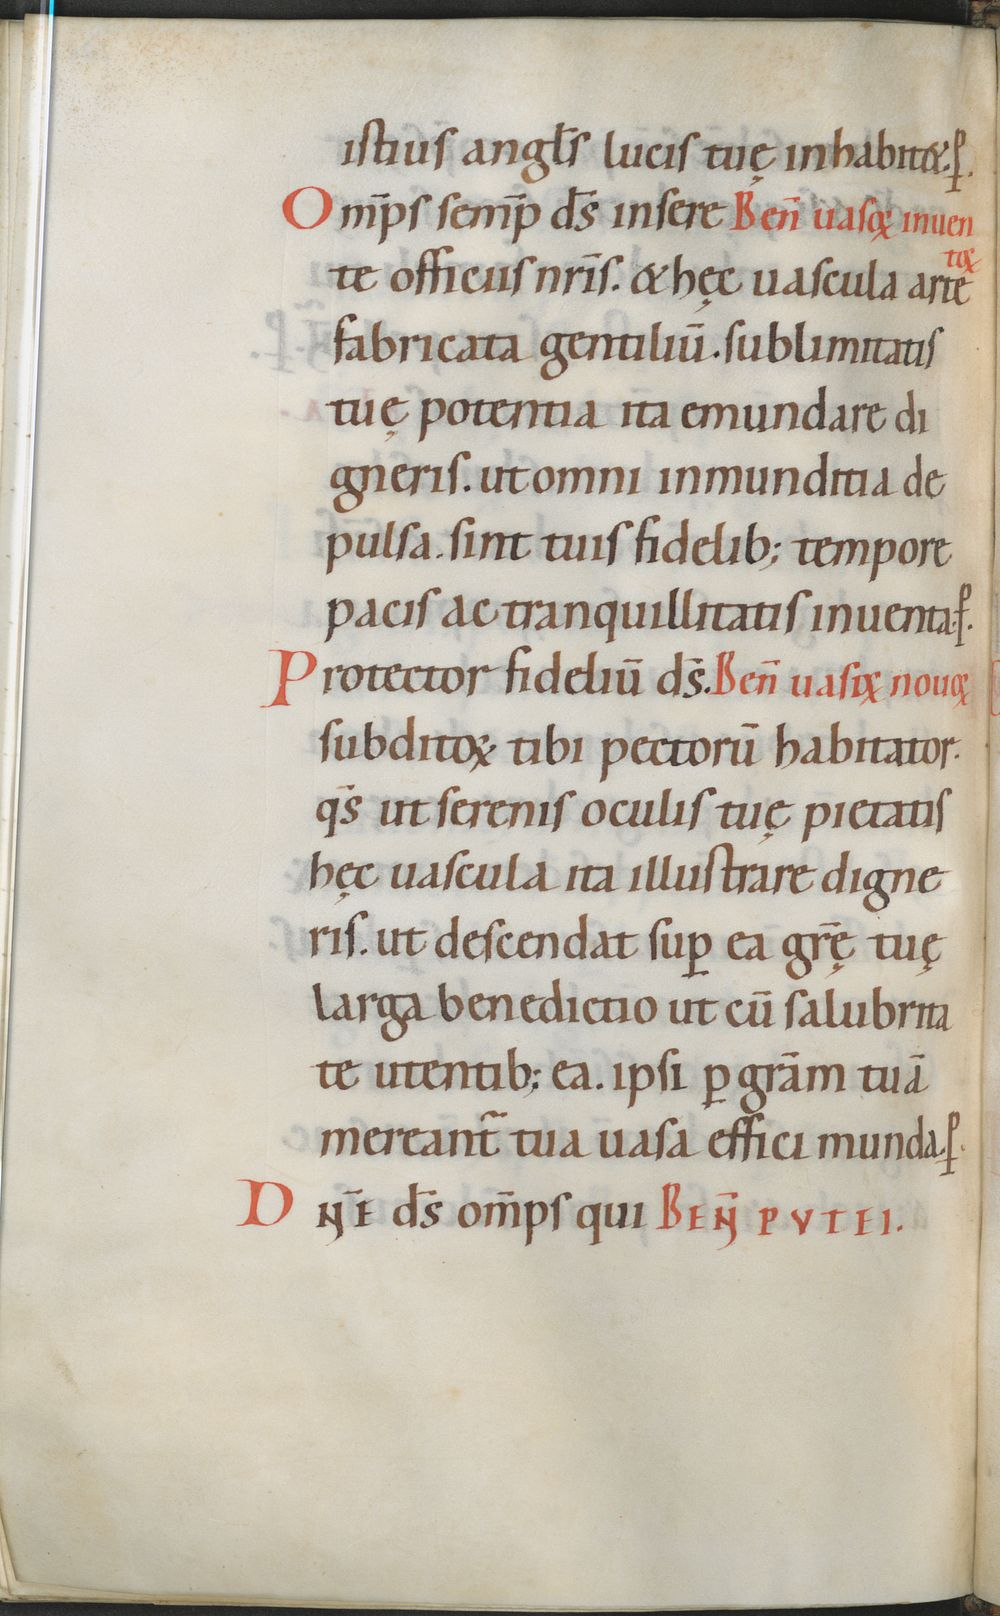 istius angl̄s lucis tuę inhabit&. ꝑ.
Om̄ps semp̄ d̄s insere Ben̄ uasoꝝ inuen
toꝝ
te officiis nr̄is. & hęc uascula arte
fabricata gentiliū. sublimitatis
tuę potentia ita emundare di
gneris. ut omni inmunditia de
pulsa. sint tuis fidelib; tempore
pacis ac tranquillitatis inuenta. ꝑ.
Protector fideliū d̄s. Ben̄ uasoꝝ nouoꝝ
subditoꝝ tibi pectorū habitator.
q̄s ut serenis oculis tuę pietatis
hęc uascula ita illustrare digne
ris. ut descendat suꝑ ea gr̄ę tuę
larga benedictio ut cū salubrita
te utentib; ea. ipsi ꝑ grām tuā
mereant̄ tua uasa effici munda. ꝑ.
DN̄E d̄s om̄ps qui BEN̄ PVTEI.